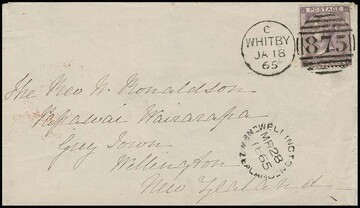 POSTAGE
C
WHITBY
JA 18
65
875
The Rev W. Ronaldson
Papawai Wairarapa
Grey Town
Wellington
New Zealand
WELLINGTON
NEW ZEALAND
MR 28
65